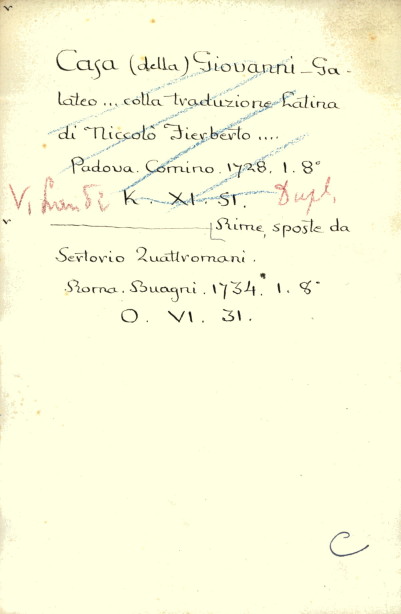 Casa (della) Giovanni - Ga-
lateo ... colla traduzione Latina
di Niccolò Fierberto ....
Padova. Comino. 1728. 1. 8°
V. Landi K. XI. 51. Dupl.
Rime, sposte da
Sertorio Quattromani.
Roma. Buagni. 1734. 1. 8°
O. VI. 31.
C